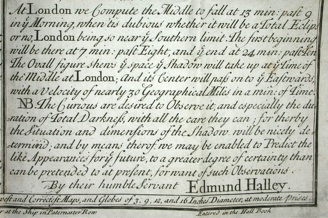 At London we Compute the Middle to fall at 13 min: past 9
in ẏ Morning, when tis dubious whether it will be a Total Eclipse
or no, London being so near ẏ Southern limit. The first beginning
will be there at 7 min: past Eight, and ẏ end at 24 min: past ten.
The Ovall figure shews ẏ space ẏ Shadow will take up at ẏ time of
the Middle at London; and its Center will pass on to ẏ Eastwards,
with a Velocity of nearly 30 Geographical Miles in a min: of Time.
NB. The Curious are desired to Observe it, and especially the du-
ration of Total Darkness, with all the care they can; for therby
the Situation and dimensions of the Shadow will be nicely de-
termin'd; and by means therof we may be enabled to Predict the
like Appearances for ẏ future, to a greater degree of certainty than
can be pretended to at present, for want of such Observations.
By their humble Servant Edmund Halley.
Correctest Maps, and Globes of 3, 9, 12, and 16 Inches Diameter, at moderate Prices.
at the Ship in Paternoster Row Entered in the Hall Book